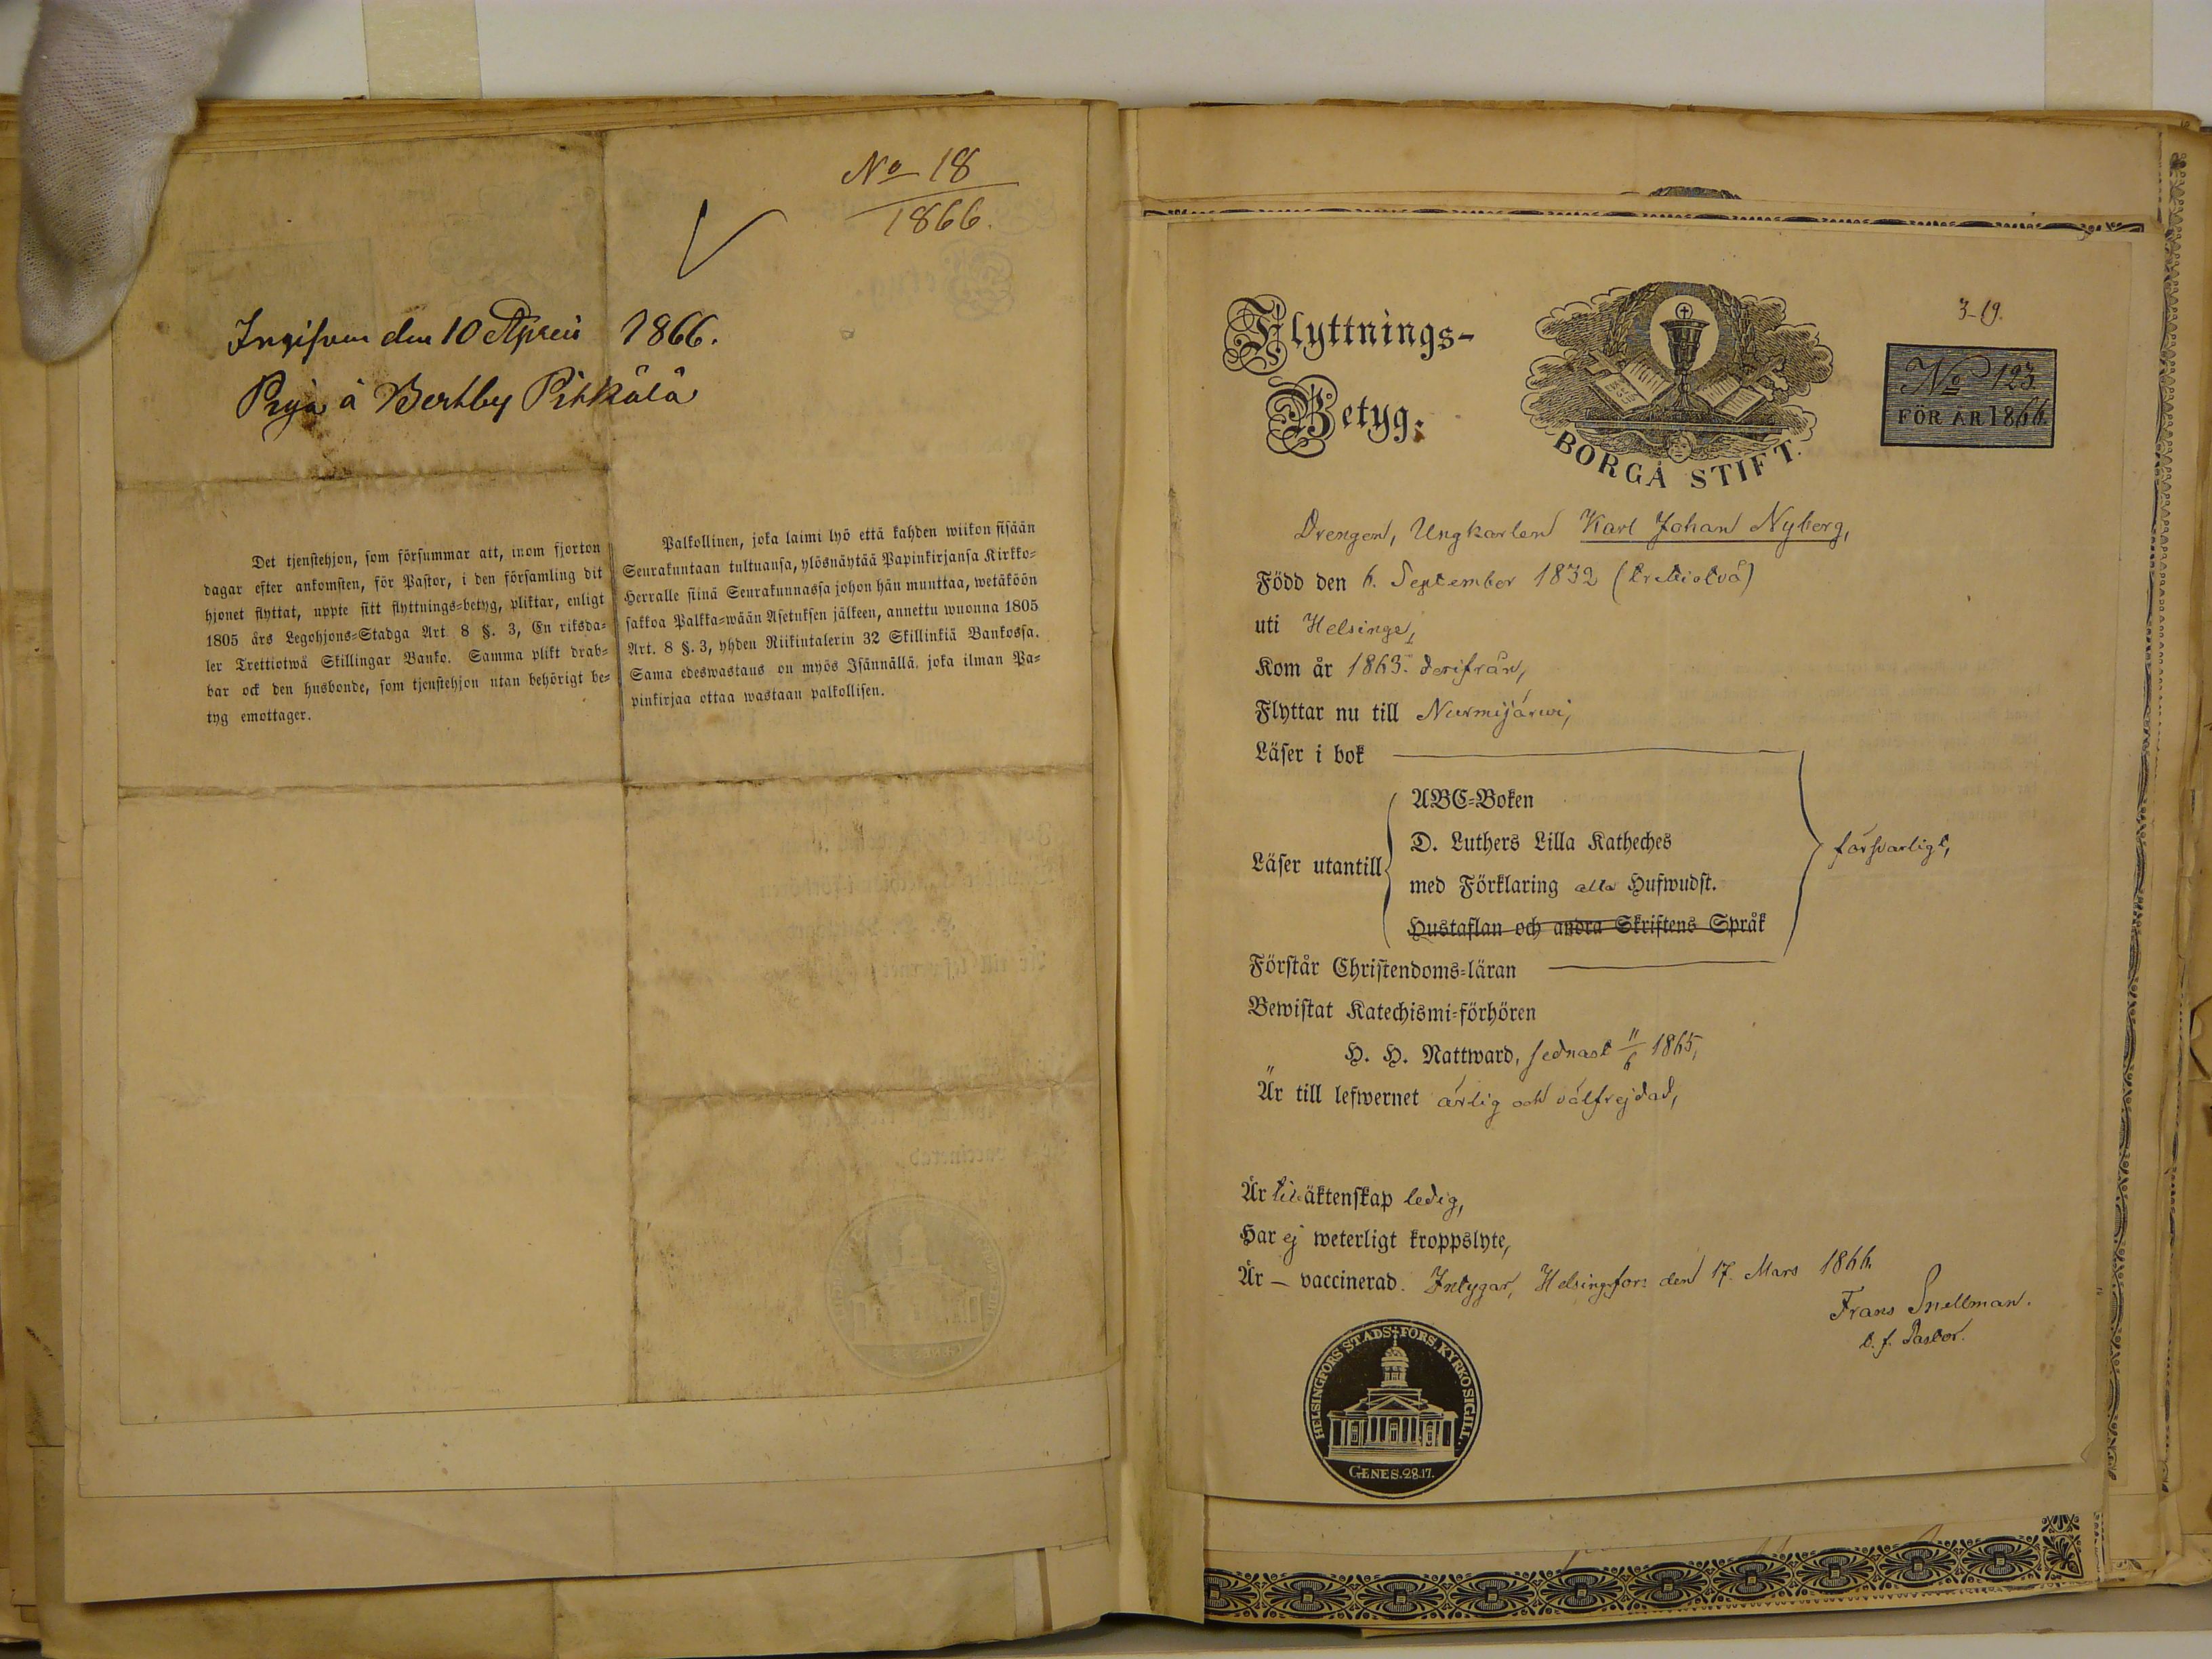 No 18
1866.
Ingifven den 10 Apreil 1866.
Piga å Bertby Pitkälä
Det tjenstehjon, som försummar att, inom fjorton
dagar efter ankomsten, för Pastor, i den församling dit
hjonet flyttat, uppte sitt flyttnings=betyg, pliktar, enligt
1805 års Legohjons=Stadga Art 8 §. 3, En riksda=
ler Trettiotwå Skillingar Banko. Samma plikt drab=
bar ock den husbonde, som tjenstehjon utan behörigt be=
tyg emottager.
Palkollinen, joka laimi lyö että kahden wiikon sisään
Seurakuntaan tultuansa, ylösnäytää Papinkirjansa Kirkko=
Herralle siinä Seurakunnassa johon hän muuttaa, wetäköön
sakkoa Palkka=wään Asetuksen jälkeen, annettu wuonna 1805
Art. 8 §. 3, yhden Riikintalerin 32 Skillinkiä Bankossa.
Sama edeswastaus on myös Isännällä, joka ilman Pa=
pinkirjaa ottaa wastaan palkollisen.
3-19.
Flyttnings-
Betyg.
BORGÅ STIFT.
No 123.
FÖR ÅR 1866.
Drengen, Ungkarlen Karl Johan Nyberg,
Född den 6. September 1832 (trettiotvå)
uti Helsinge,
Kom år 1863. derifrån,
Flyttar nu till Nurmijärwi,
Läser i bok
ABC=Boken
D. Luthers Lilla Katheches
Läser utantill
försvarligt,
med Förklaring alla Hufwudst.
Hustaflan och andra Skriftens Språk
Förstår Christendoms=läran
Bewistat Katechismi=förhören
H. H. Nattward, sednast 11/6 1865,
Är till lefwernet ärlig och välfrejdad,
Är till äktenskap ledig,
Har ej weterligt kroppslyte,
Är — vaccinerad. Intygar, Helsingfors den 17. Mars 1866.
Frans Snellman.
t. f. Pastor.
HELSINGFORS STADS FÖRS. KYRKO SIGILL.
GENES. 28.17.